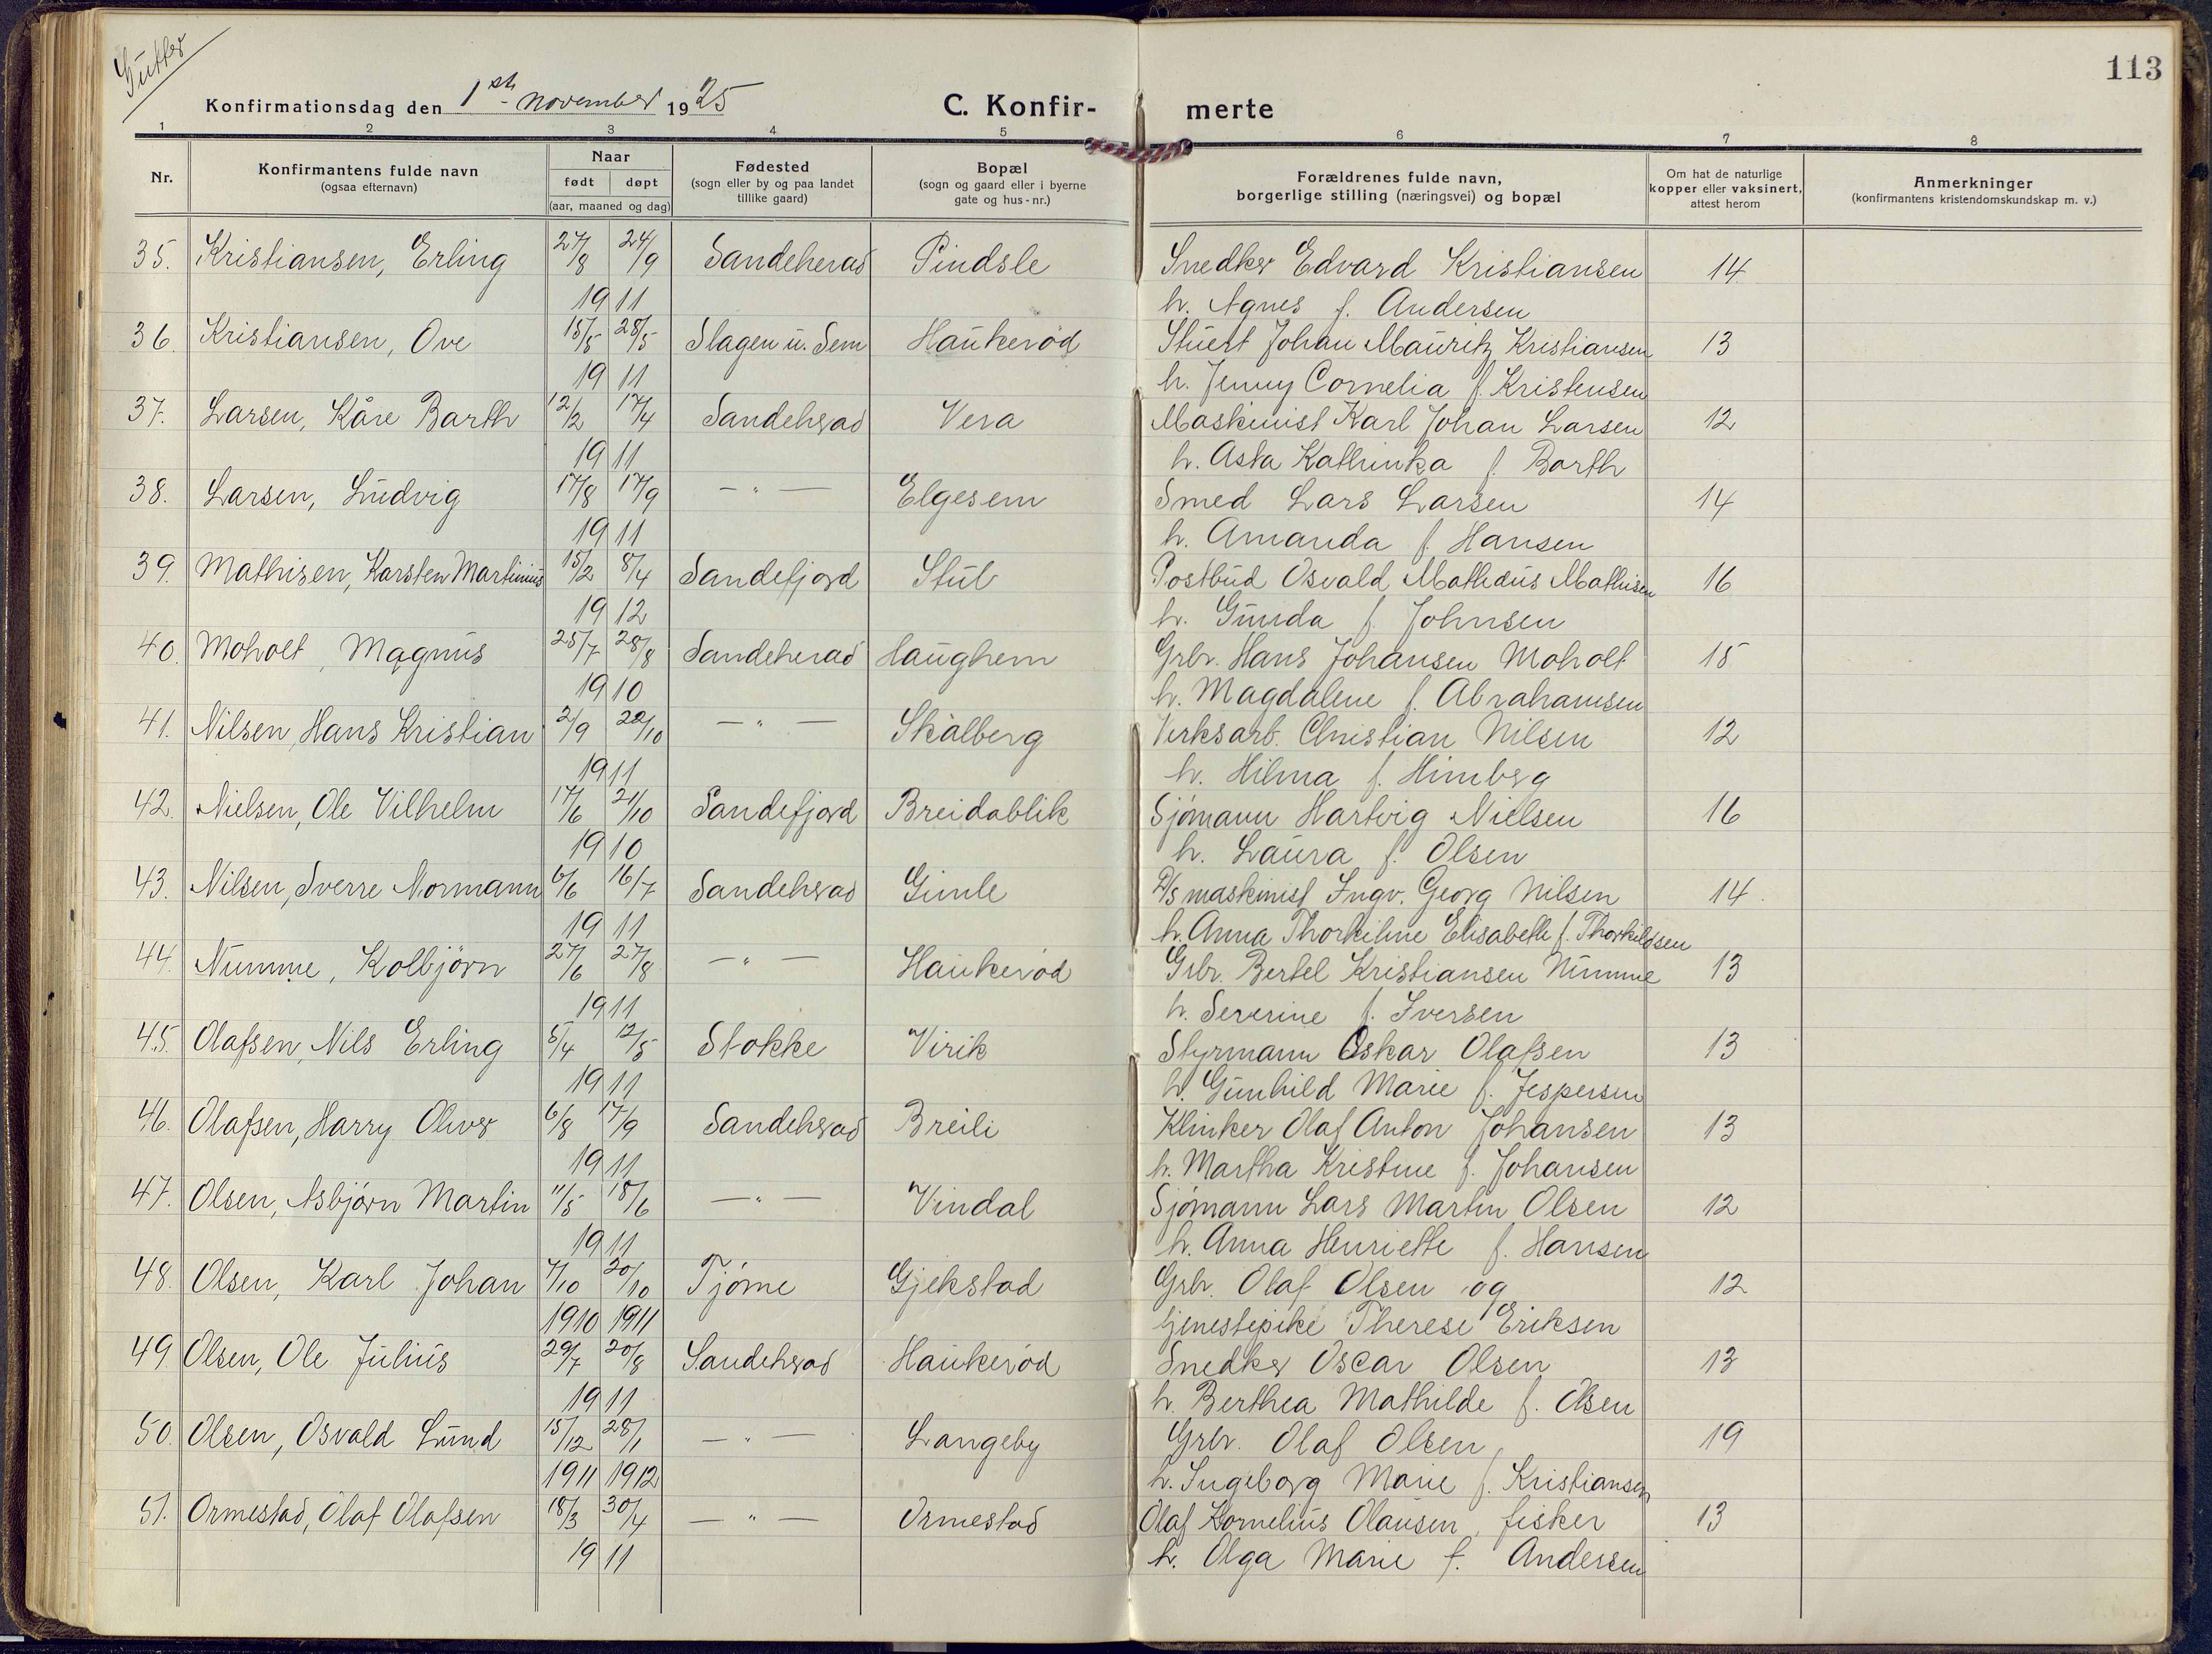 Gutter
113
Konfirmationsdag den 1ste november 1925 C. Konfirmerte
1 2 3 4 5 6 7 8
Nr. Konfirmantens fulde navn (ogsaa efternavn) Naar født døpt (aar, maaned og dag) Fødested (sogn eller by og paa landet tillike gaard) Bopæl (sogn og gaard eller i byerne gate og hus-nr.) Forældrenes fulde navn, borgerlige stilling (næringsvei) og bopæl Om hat de naturlige kopper eller vaksinert, attest herom Anmerkninger (konfirmantens kristendomskundskap m. v.)
35. Kristiansen, Erling 27/8 24/9 Sandeherad Pindsle Snedker Edvard Kristiansen 14
1911 h. Agnes f. Andersen
36. Kristiansen, Ove 15/5 28/5 Slagen u. Sem Haukerød Stuert Johan Mauritz Kristiansen 13
1911 h. Jenny Cornelia f. Kristensen
37. Larsen, Kåre Barth 12/2 17/4 Sandeherad Vera Maskinist Karl Johan Larsen 12
1911 h. Asta Kathinka f. Barth
38. Larsen, Ludvig 17/8 17/9 — " — Elgesem Smed Lars Larsen 14
1911 h. Amanda f. Hansen
39. Mathisen, Karsten Martinius 15/2 8/4 Sandefjord Stub Postbud Osvald Mathæus Mathisen 16
1912 h. Gunda f. Johnsen
40. Moholt, Magnus 25/7 28/8 Sandeherad Haughem Grbr. Hans Johansen Moholt 15
1910 h. Magdalene f. Abrahamsen
41. Nilsen, Hans Kristian 2/9 22/10 — " — Skålberg Verksarb. Christian Nilsen 12
1911 h. Hilma f. Himberg
42. Nielsen, Ole Vilhelm 17/6 21/10 Sandefjord Breidablik Sjømann Hartvig Nielsen 16
1910 h. Laura f. Olsen
43. Nilsen, Sverre Normann 6/6 16/7 Sandeherad Gimle D/S maskinist Ingv. Georg Nilsen 14
1911 h. Anna Thorkiline Elisabeth f. Thorkildsen
44. Numme, Kolbjørn 27/6 27/8 — " — Haukerød Grbr. Bertel Kristiansen Numme 13
1911 h. Severine f. Iversen
45. Olafsen, Nils Erling 5/4 12/5 Stokke Virik Styrmann Oskar Olafsen 13
1911 h. Gunhild Marie f. Jespersen
46. Olafsen, Harry Oliver 6/8 17/9 Sandeherad Breili Klinker Olaf Anton Johansen 13
1911 h. Martha Kristine f. Johansen
47. Olsen, Asbjørn Martin 11/5 18/6 — " — Vindal Sjømann Lars Martin Olsen 12
1911 h. Anna Henriette f. Hansen
48. Olsen, Karl Johan 7/10 20/10 Tjøme Gjekstad Grbr. Olaf Olsen og 12
1910 1911 tjenestepike Therese Eriksen
49. Olsen, Ole Julius 29/7 20/8 Sandeherad Haukerød Snedker Oscar Olsen 13
1911 h. Berthea Mathilde f. Olsen
50. Olsen, Osvald Lund 15/12 28/1 — " — Langeby Grbr. Olaf Olsen 19
1911 1912 h. Ingeborg Marie f. Kristiansen
51. Ormestad, Olaf Olafsen 18/3 30/4 — " — Ormestad Olaf Kornelius Olausen, fisker 13
1911 h. Olga Marie f. Andersen